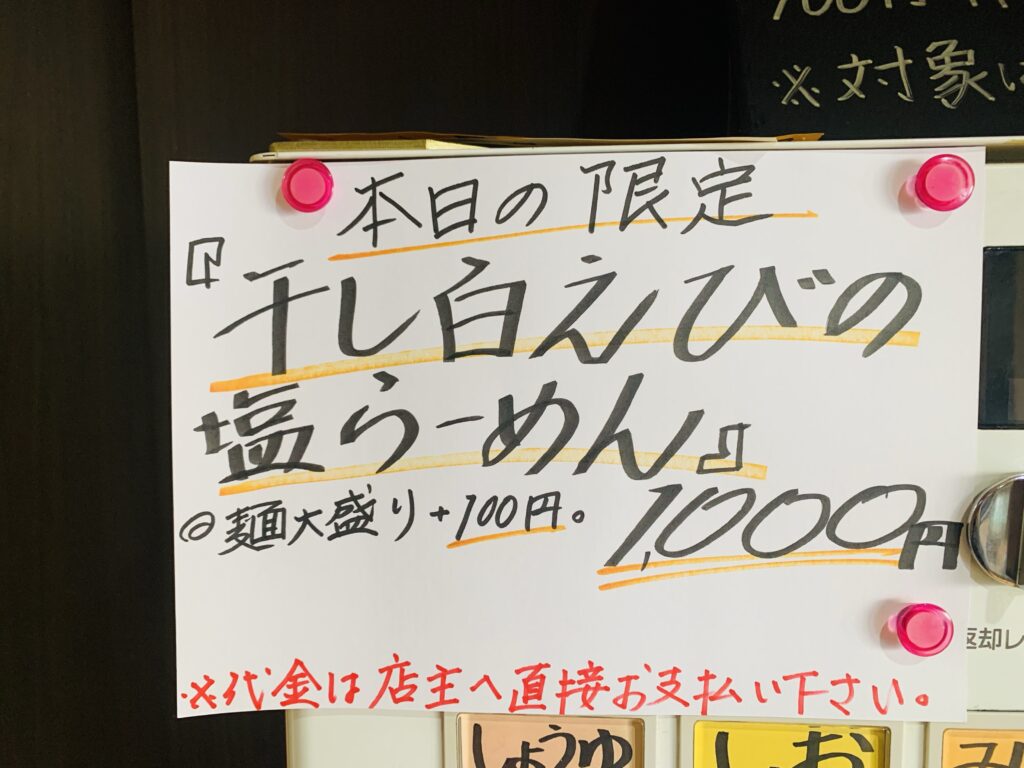 ※対象は
本日の限定
『干し白えびの
塩らーめん』
◎麺大盛り+100円。
1,000円
返却レ
※代金は店主へ直接お支払い下さい。
しょうゆ
しお
み